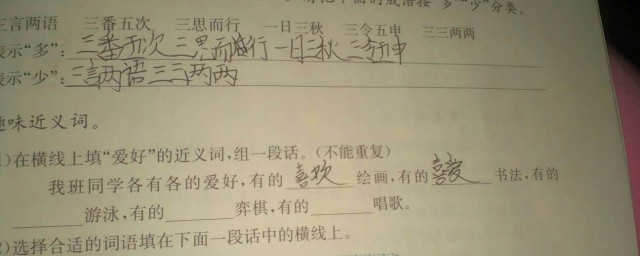 把下面的成语按"多""少"分类。
三言两语 三番五次 三思而行 一日三秋 三令五申 三三两两
表示"多": 三番五次 三思而行 一日三秋 三令五申
表示"少": 三言两语 三三两两
趣味近义词。
1)在横线上填"爱好"的近义词,组一段话。(不能重复)
我班同学各有各的爱好,有的 喜欢 绘画,有的 喜爱 书法,有的
游泳,有的 弈棋,有的 唱歌。
2)选择合适的词语填在下面一段话中的横线上。